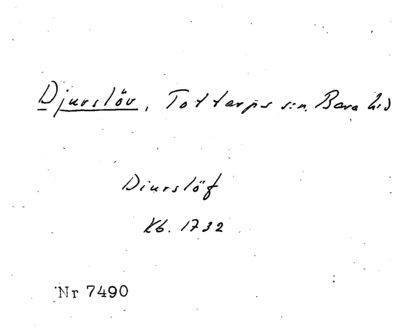 Djurslöv, Tottarps sn. Bara hd
Diurslöf
Kb. 1732
Nr 7490